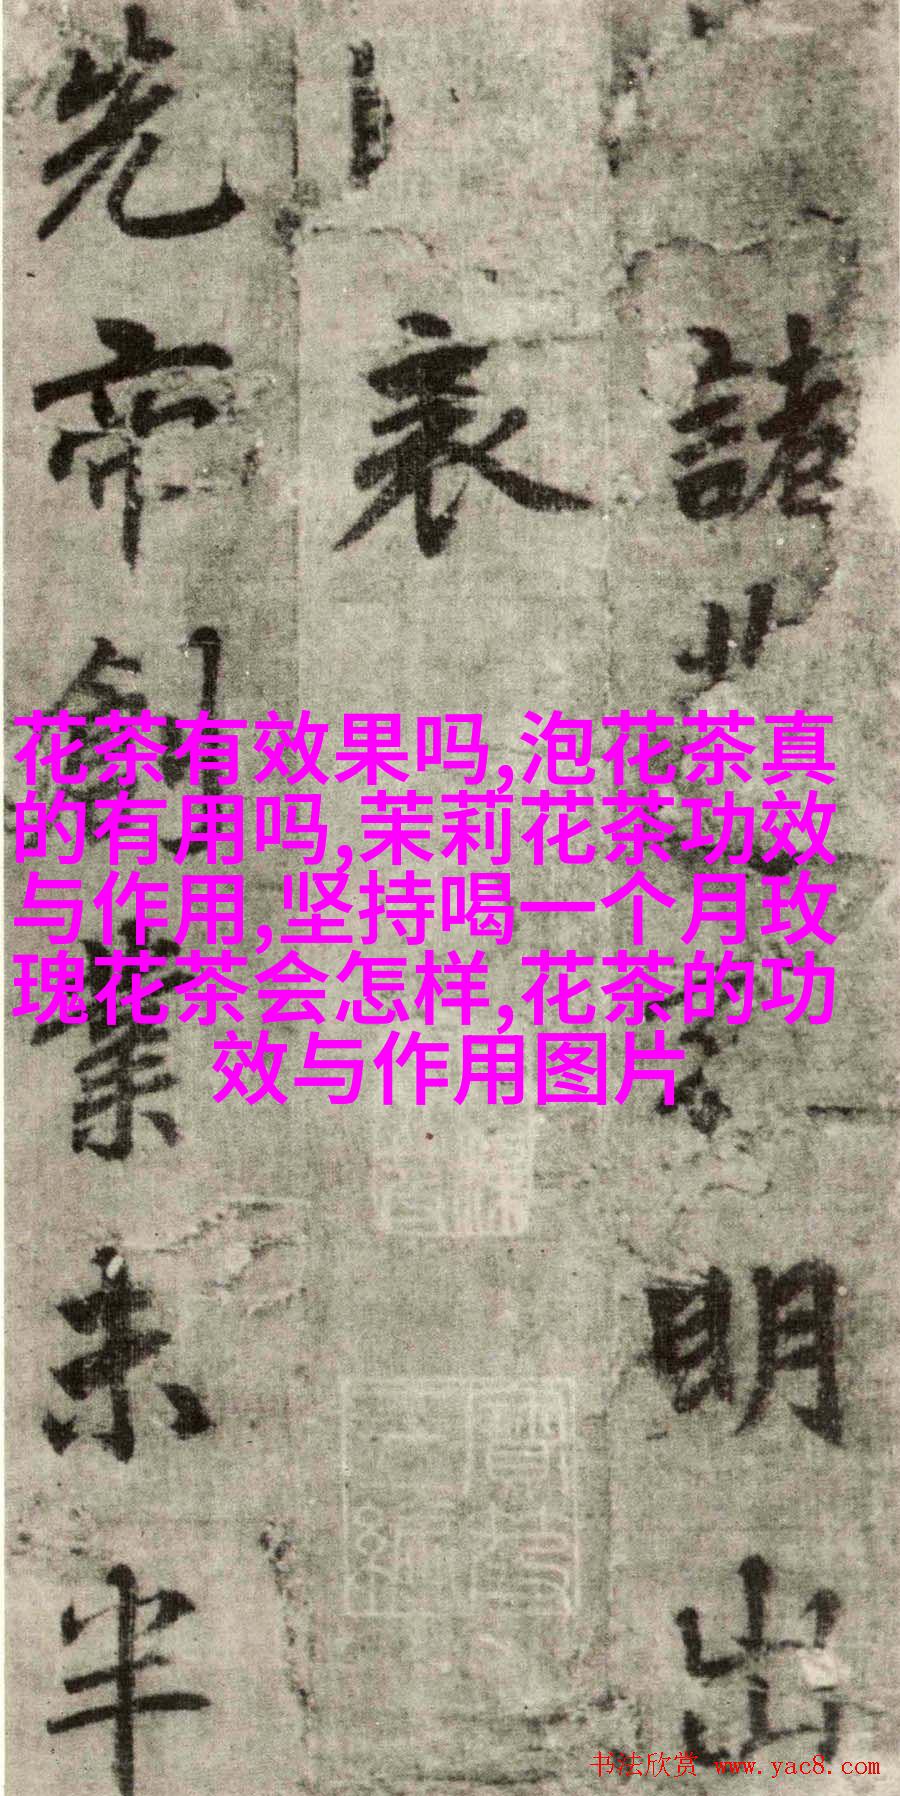 諸葛明出
表
先帝創業未半
花茶有效果吗,泡花茶真
的有用吗,茉莉花茶功效
与作用,坚持喝一个月玫
瑰花茶会怎样,花茶的功
效与作用图片
书法欣赏 www.yac8.com